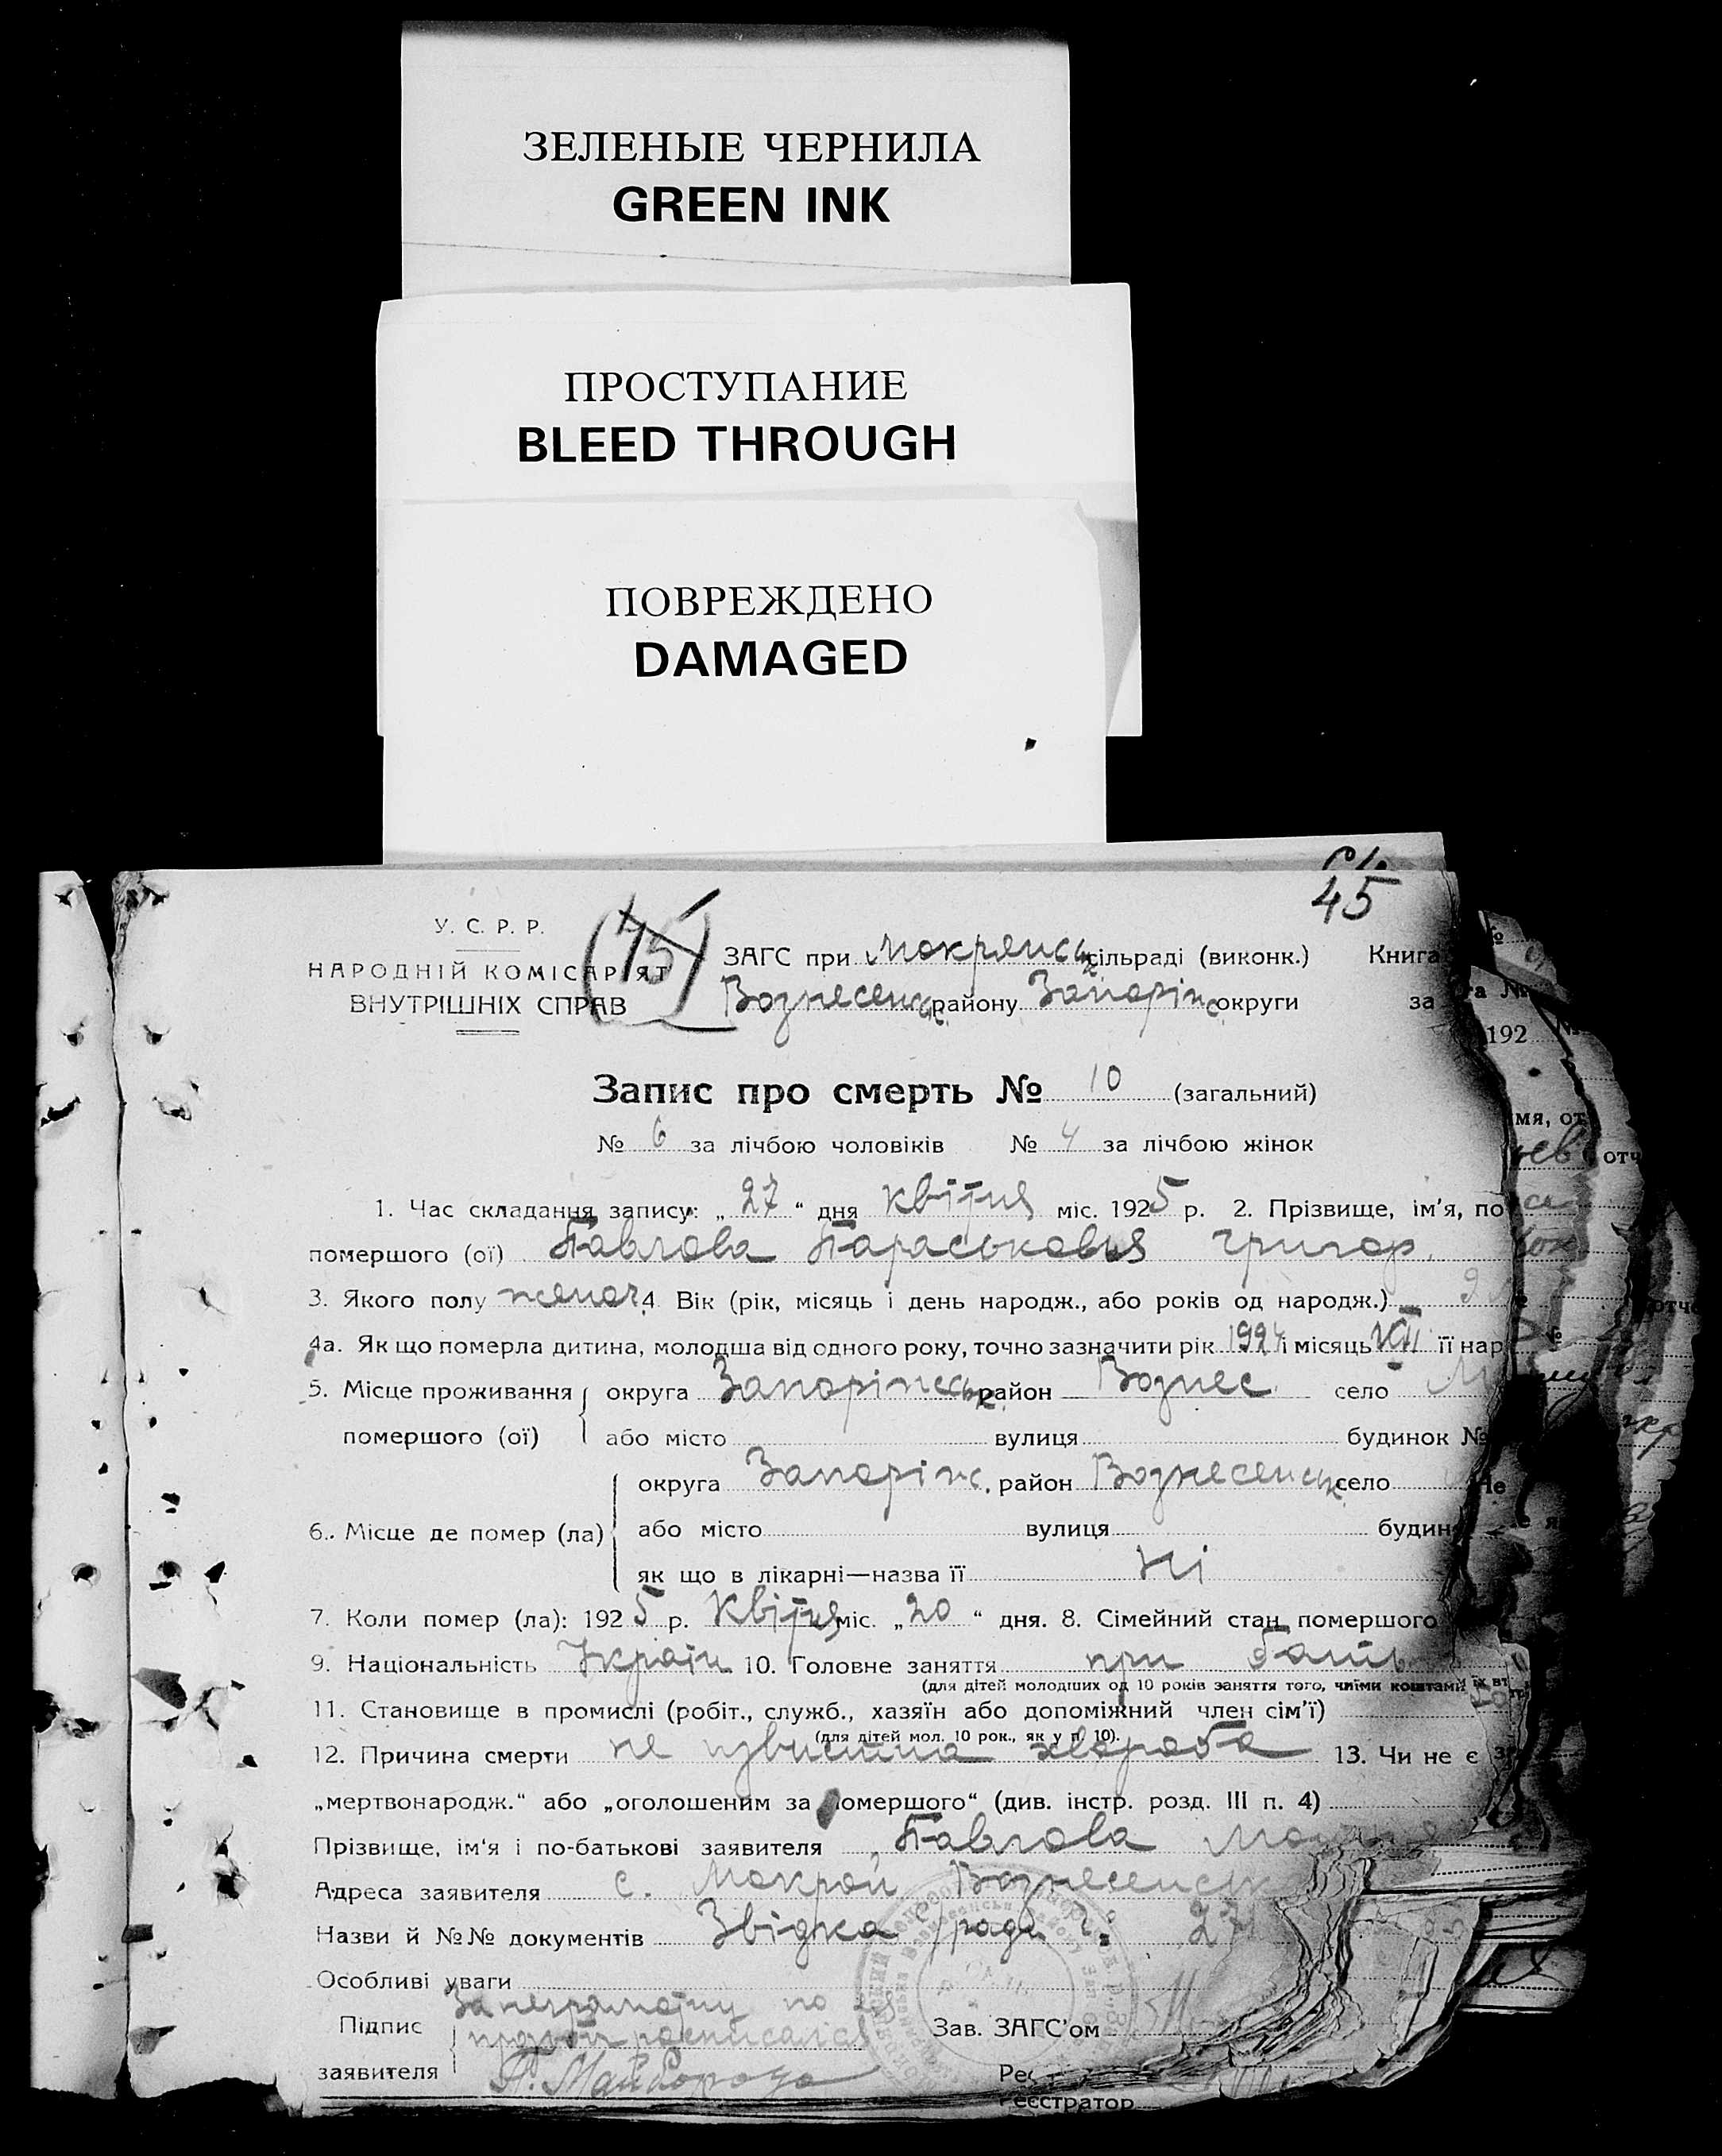 ЗЕЛЕНЫЕ ЧЕРНИЛА
GREEN INK
ПРОСТУПАНИЕ
BLEED THROUGH
ПОВРЕЖДЕНО
DAMAGED
45
У. С. Р. Р.
НАРОДНІЙ КОМІСАРІЯТ
ВНУТРІШНІХ СПРАВ
(75)
ЗАГС при Мокрянськ сільраді (виконк.) Книга
Вознесенськ району Запоріж округи за
192
Запис про смерть № 10 (загальний)
№ 6 за лічбою чоловіків № 4 за лічбою жінок
1. Час складання запису: „ 27 “ дня квітня міс. 1925 р. 2. Прізвище, ім'я, по
помершого (ої) Павлова Параськовія Григор.
3. Якого полу жіноч 4 Вік (рік, місяць і день народж., або років од народж.) 9
4а. Як що померла дитина, молодша від одного року, точно зазначити рік 1924 і місяць її нар
5. Місце проживання округа Запоріжськ район Вознес. село М
помершого (ої) або місто вулиця будинок №
округа Запоріж. район Вознесенськ село
6. Місце де помер (ла) або місто вулиця будин
як що в лікарні—назва її Ні
7. Коли помер (ла): 1925 р. Квітня міс. „20 “ дня. 8. Сімейний стан помершого
9. Національність Україн 10. Головне заняття при бать
(для дітей молодших од 10 років заняття того, чиїми коштами їх
11. Становище в промислі (робіт., служб., хазяїн або допоміжний член сім'ї)
(для дітей мол. 10 рок., як у п. 10).
12. Причина смерти не ізвистна хвороба 13. Чи не є
„мертвонародж.“ або „оголошеним за помершого“ (див. інстр. розд. III п. 4)
Прізвище, ім'я і по-батькові заявителя Павлова
Адреса заявителя с. Мокрой Вознесенськ
Назви й №№ документів Звідка ради 27
Особливі уваги
За неграмотну по
Підпис розписался
заявителя Майборода
Зав. ЗАГС'ом
Реєстратор